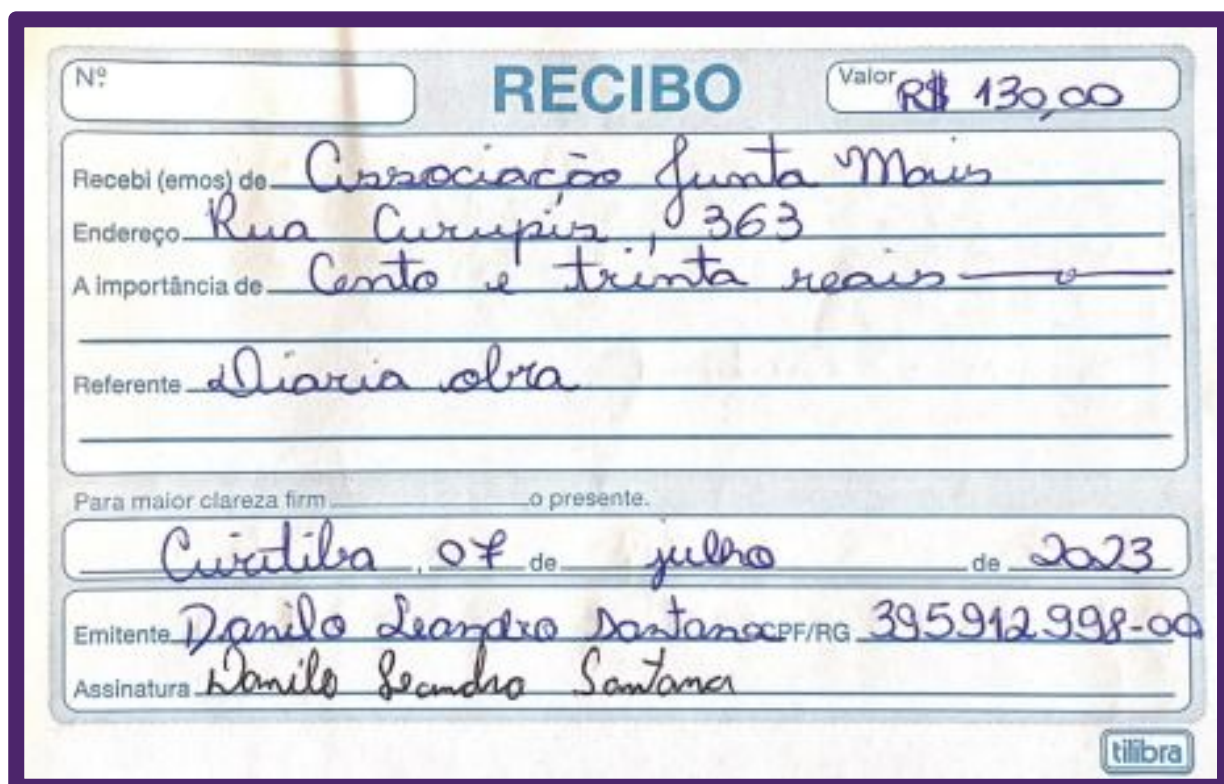 Nº
RECIBO
Valor R$ 130,00
Recebi (emos) de Associação Junta Mais
Endereço Rua Curupis, 363
A importância de Cento e trinta reais
Referente Diaria obra
Para maior clareza firm o presente.
Curitiba, 07 de julho de 2023
Emitente Danilo Leandro Santana CPF/RG 395912998-00
Assinatura Danilo Leandro Santana
tilibra